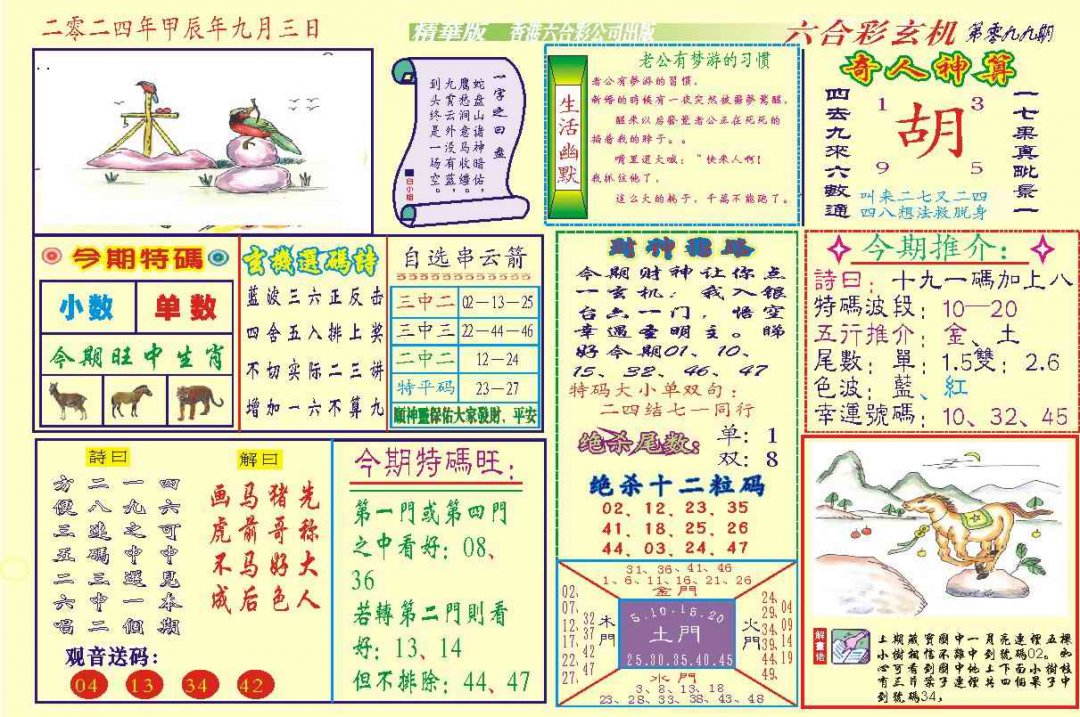 二零二四年甲辰年九月三日
精華版 香港六合彩公司出版
六合彩玄机 第零九九期
一字之曰 盘
蛇盘山诸神暗佑,
鹰愁涧意马收缰。
九霄云外没有蓝,
到头终是一场空。
白小姐
生活幽默
老公有梦游的习惯
老公有夢游的習慣,
新婚的時候有一夜突然被噩夢驚醒,
醒来以后發覺老公正在死死的
掐着我的脖子。。
嘴里還大喊:“快来人啊!
我抓住他了,
这么大的耗子, 千萬不能跑了。
奇人神算
四去九來六數通
1 3
胡
9 5
一七果真毗景一
叫来二七又二四
四八想法救脱身
今期特碼
小数 单数
今期旺中生肖
玄機選碼詩
蓝波三六正反击
四舍五入排上奖
不切实际二三讲
增加一六不算九
自选串云箭
三中二 02—13—25
三中三 22—44—46
二中二 12—24
特平码 23—27
願神靈保佑大家發財、平安
財神指路
今期财神让你点
一玄机: 我入银
台点一门, 悟空
幸遇圣明主。睇
好今期01、10、
15、32、46、47
特码大小单双句:
二四结七一同行
绝杀尾数: 单: 1
双: 8
绝杀十二粒码
02、12、23、35
41、18、25、26
44、03、24、47
今期推介:
詩曰: 十九一碼加上八
特碼波段: 10—20
五行推介: 金、土
尾數: 單: 1.5雙: 2.6
色波: 藍、紅
幸運號碼: 10、32、45
詩曰
四六可中見本期
一九之中選一個
二八连碼三中二
方便三五二六唱
解曰
先称大人
猪哥好色
马前马后
画虎不成
观音送码:
04 13 34 42
今期特碼旺:
第一門或第四門
之中看好: 08、
36
若轉第二門則看
好: 13、14
但不排除: 44、47
31、36、41、46
1、6、11、16、21、26
金門
02、07、12、17、22、27、
32 37 42 47
木門
5.10.15.20
土門
25.30.35.40.45
火門
24、29、34、39、44、49、
04 09 14 19
水門
3、8、13、18
23、28、33、38、43、48
解畫偈
上期藏寶圖中一月亮連埋五棵
小樹相信不難中到號碼02。如
心可看到圖中地上下面小樹枝
有三片葉子連埋共四個果子中
到號碼34,